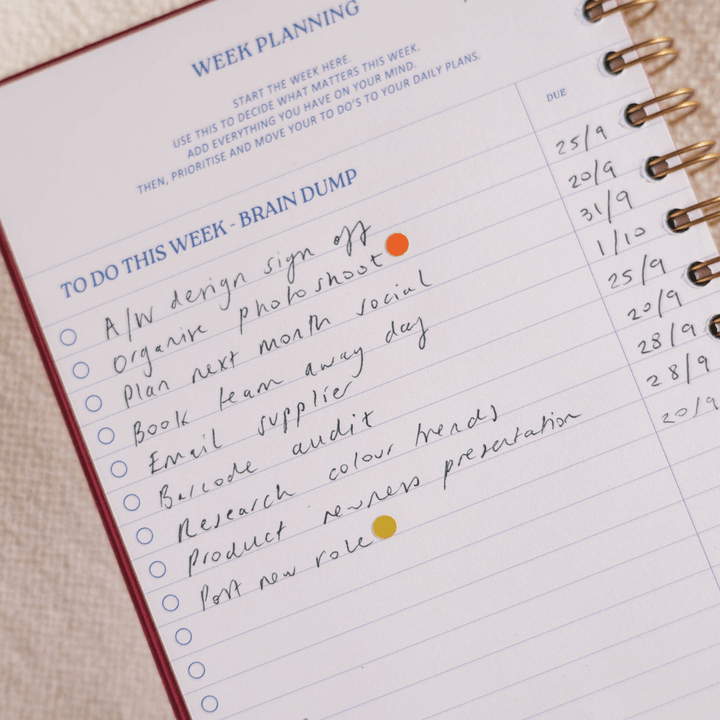 WEEK PLANNING
START THE WEEK HERE.
USE THIS TO DECIDE WHAT MATTERS THIS WEEK.
ADD EVERYTHING YOU HAVE ON YOUR MIND.
THEN, PRIORITISE AND MOVE YOUR TO DO'S TO YOUR DAILY PLANS.
TO DO THIS WEEK - BRAIN DUMP DUE
A/W design sign off 25/9
Organise photoshoot 20/9
Plan next month social 31/9
Book team away day 1/10
Email supplier 25/9
Barcode audit 20/9
Research colour trends 28/9
Product newness presentation 28/9
Post new role 20/9